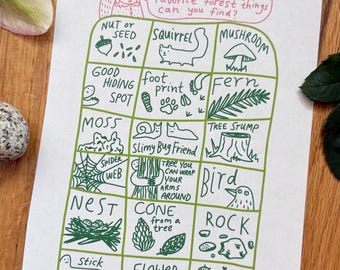 favorite forest things
can you find?
NUT or
SEED
SQUIRREL
MUSHROOM
GOOD
HIDING
SPOT
foot
print
Fern
MOSS
Slimy Bug Friend
TREE STUMP
SPIDER
WEB
TREE YOU CAN
WRAP
YOUR
ARMS
AROUND
Bird
NEST
CONE
from a
tree
ROCK
Stick
FLOWER